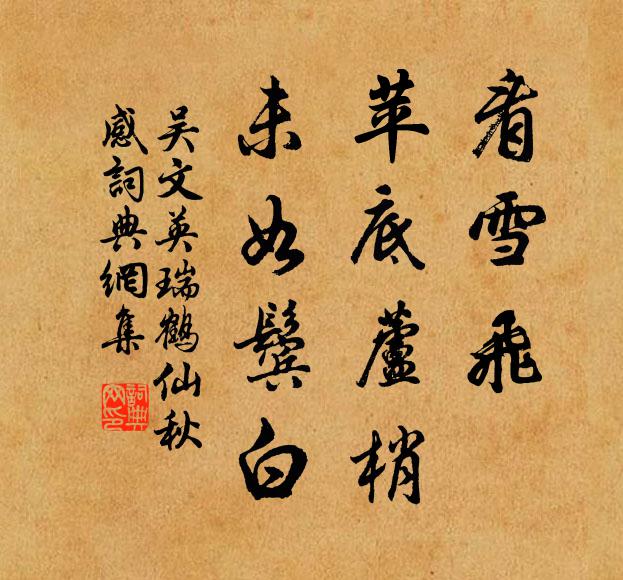 看雪飛
苹底蘆梢
未如鬢白
吴文英瑞鶴仙秋
感詞典網集
詞典
网印